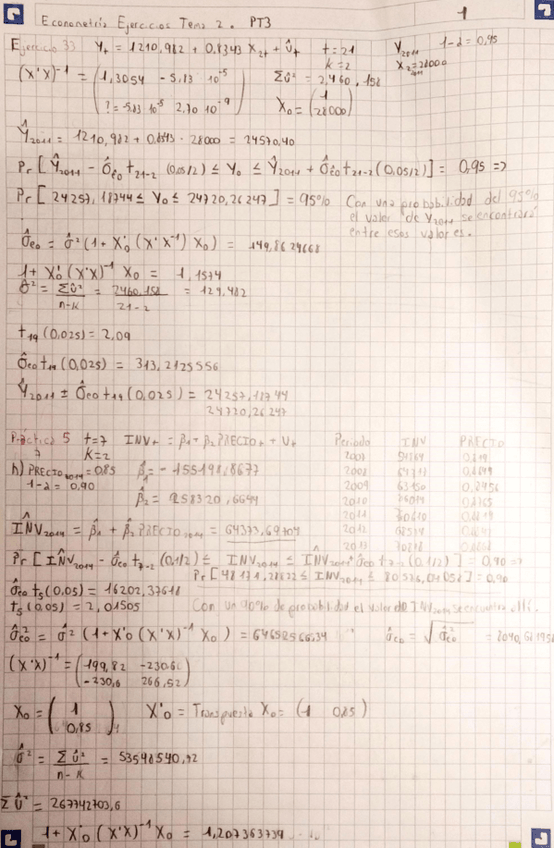 Econometría Ejercicios Tema 2. PT3
1
Ejercicio 33 Yt = 1210,982 + 0,8343 X2t + Ût t=21 Y2011 1-α = 0,95
k=2 X2 2011 = 28000
(X'X)⁻¹ = (1,3054 -5,13 10⁻⁵ Σû² = 2,460,158
?= -5,13 10⁻⁵ 2,10 10⁻⁹) X0 = (1 28000)
Ŷ2011 = 1210,982 + 0,8343 · 28000 = 24570,40
Pr [Ŷ2011 - σ̂e0 t21-2 (0,05/2) ≤ Y0 ≤ Ŷ2011 + σ̂e0 t21-2 (0,05/2)] = 0,95 =>
Pr [24257,18744 ≤ Y0 ≤ 24720,26247] = 95% Con una probabilidad del 95%
el valor de Y2011 se encontrará
entre esos valores.
σ̂e0 = σ̂² (1 + X'0 (X'X⁻¹) X0) = 149,8624668
1 + X'0 (X'X)⁻¹ X0 = 1,1574
σ̂² = Σû² / n-k = 2460,158 / 21-2 = 129,482
t19 (0,025) = 2,09
σ̂e0 t19 (0,025) = 313,2125556
Ŷ2011 ± σ̂e0 t19 (0,025) = 24257,18744
24720,26247
Práctica 5 t=7 INVt = β1 + β2 PRECIOt + Ut Periodo INV PRECIO
7 k=2 2007
h) PRECIO2014 = 0,85 β̂1 = -155198,8677 2008
1-α = 0,90 2009 63150
β̂2 = 258320,6644 2010
ÎNV2014 = β̂1 + β̂2 PRECIO2014 = 64373,69704 2012
2013
Pr [ÎNV2014 - σ̂e0 t7-2 (0,1/2) ≤ INV2014 ≤ ÎNV2014 + σ̂e0 t7-2 (0,1/2)] = 0,90 =>
Pr [48171,28822 ≤ INV2014 ≤ 80576,01058] = 0,90
σ̂e0 t5 (0,05) = 16202,37618
t5 (0,05) = 2,01505 Con un 90% de probabilidad el valor de INV2014 se encuentra allí.
σ̂e0² = σ̂² (1 + X'0 (X'X)⁻¹ X0) = 64652566,34 σ̂e0 = √σ̂e0² = 8040,681956
(X'X)⁻¹ = (199,82 -230,66
-230,6 266,52)
X0 = (1 0,85) X'0 = Transpuesta X0 = (1 0,85)
σ̂² = Σû² / n-k = 53548540,92
Σû² = 267742703,6
1 + X'0 (X'X)⁻¹ X0 = 1,207363739